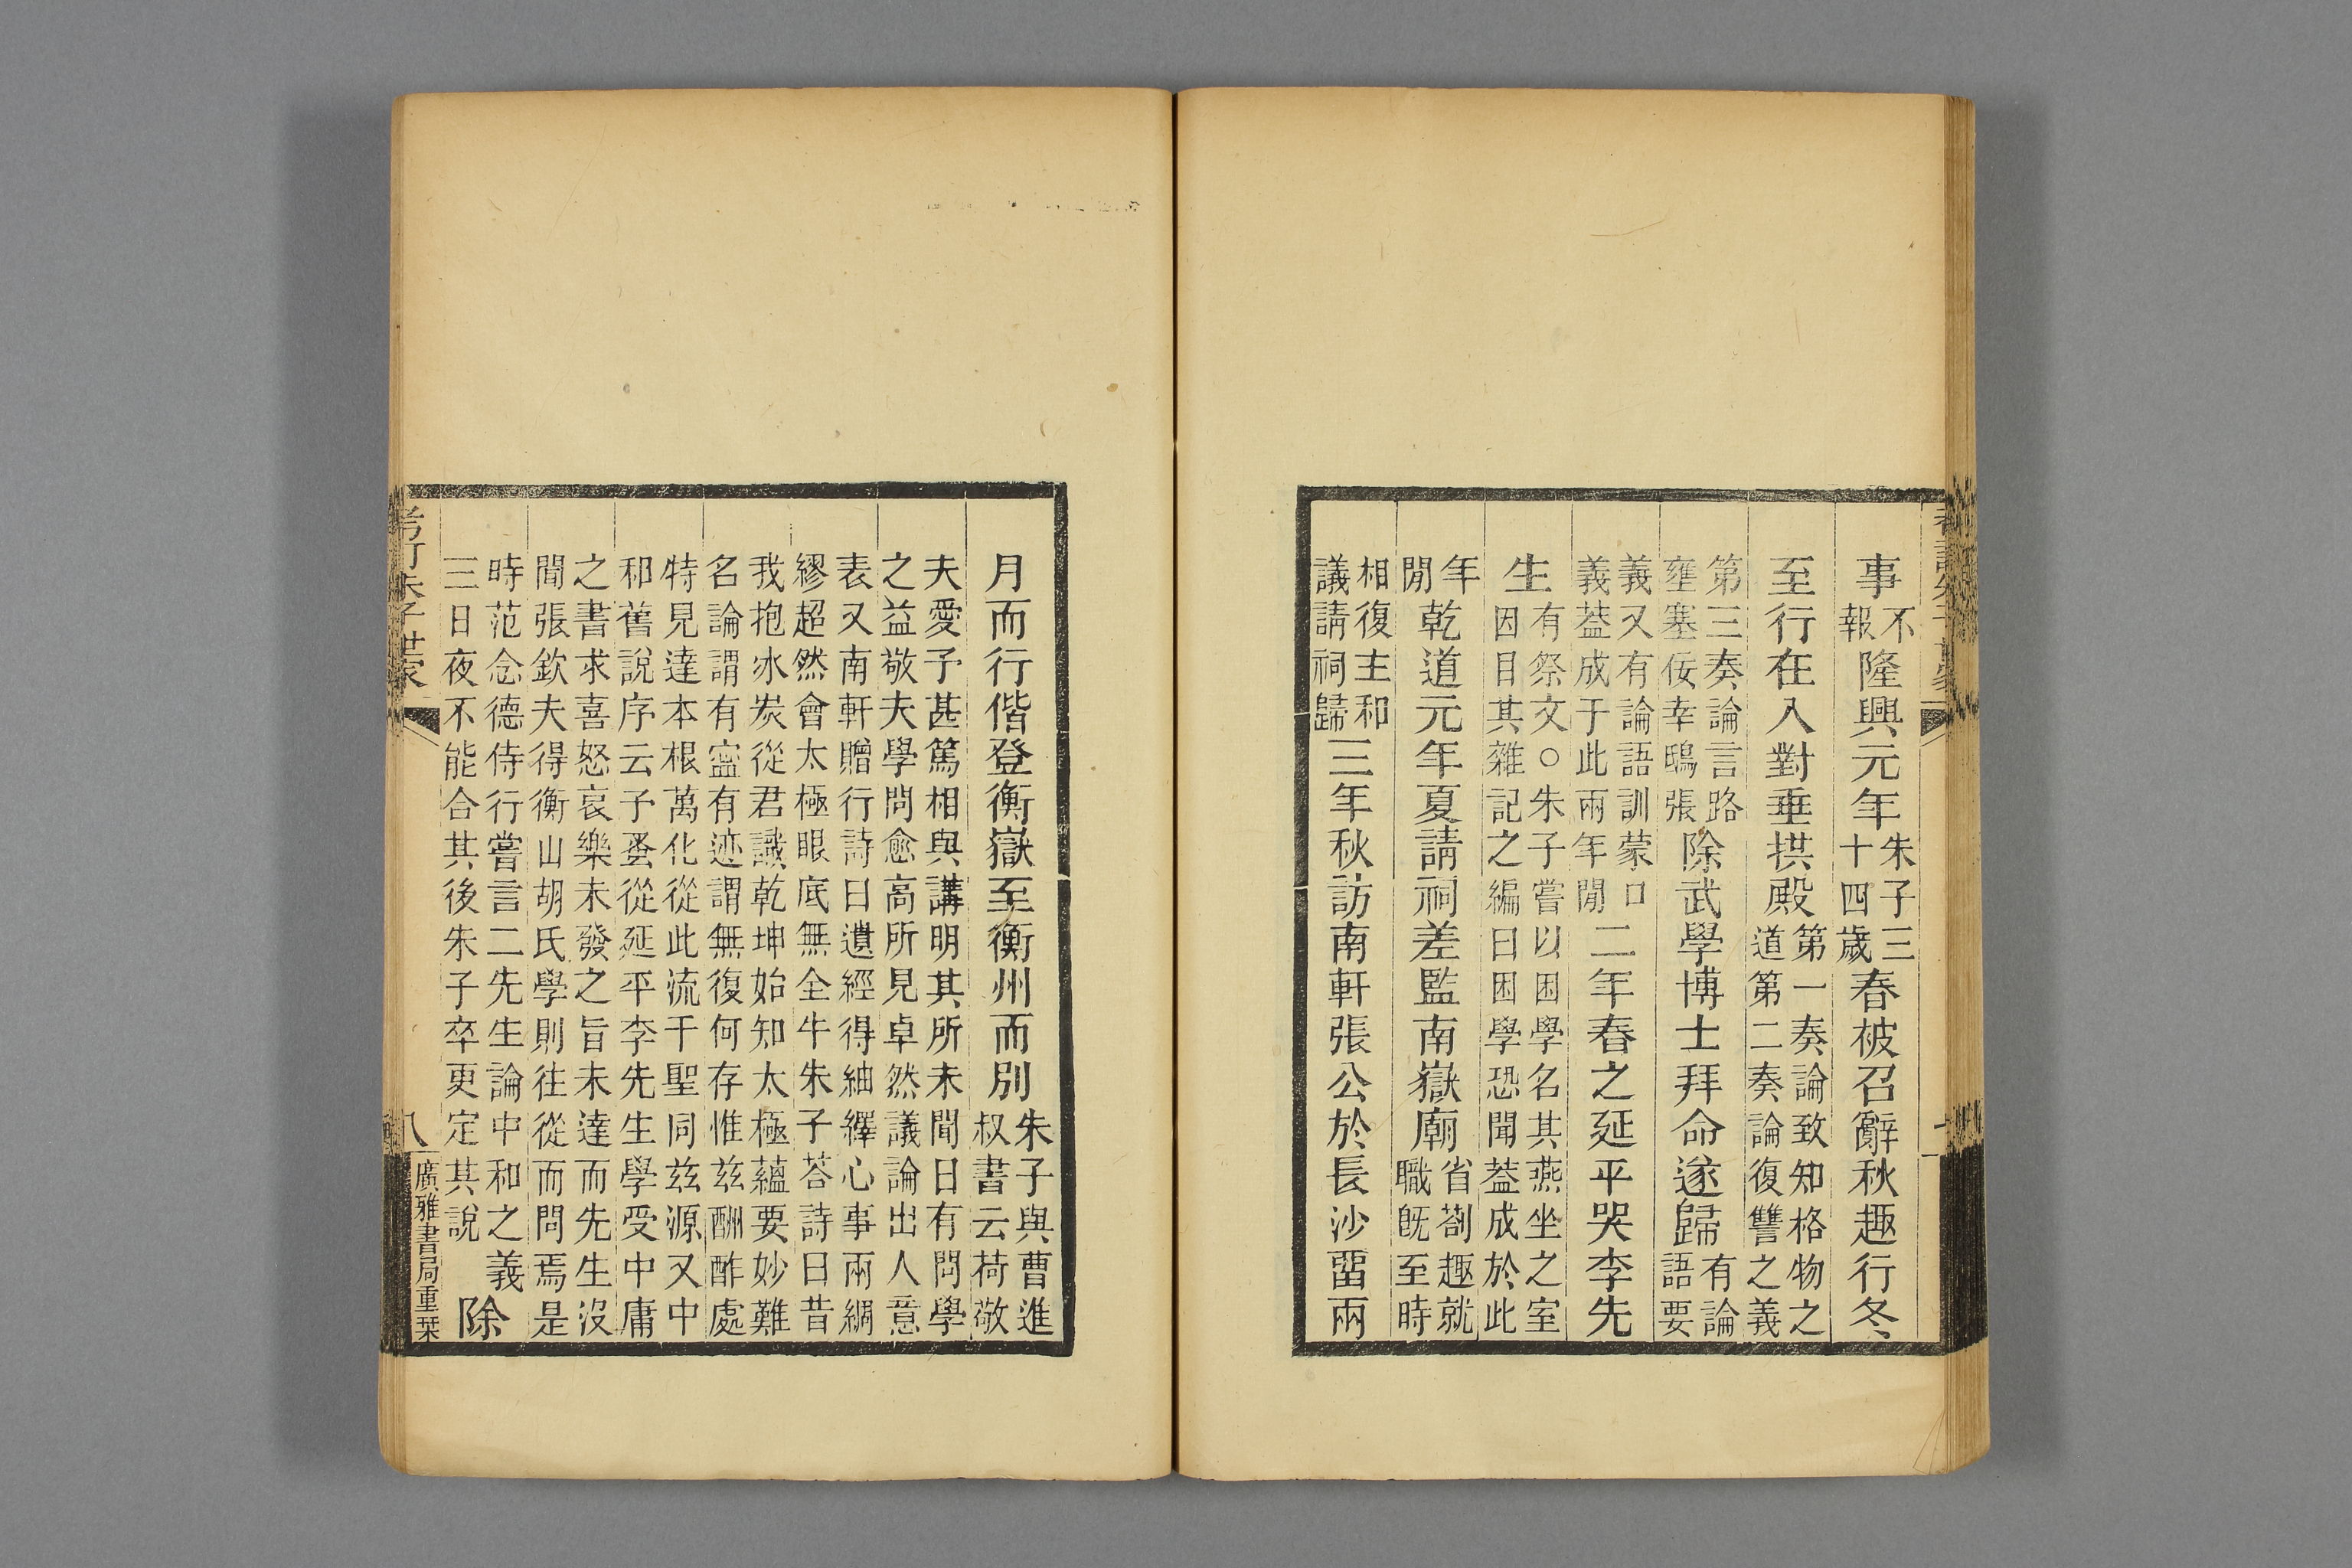 事不報隆興元年朱子三十四歲春被召辭秋趣行冬
至行在入對垂拱殿第一奏論致知格物之道第二奏論復讐之義
第三奏論言路壅塞佞幸鴟張除武學博士拜命遂歸有論語要
義又有論語訓蒙口義葢成于此兩年閒二年春之延平哭李先
生有祭文○朱子嘗以困學名其燕坐之室因目其雜記之編曰困學恐聞葢成於此
年閒乾道元年夏請祠差監南嶽廟省劄趣就職旣至時
相復主和議請祠歸三年秋訪南軒張公於長沙畱兩
月而行偕登衡嶽至衡州而別朱子與曹進叔書云荷敬
夫愛予甚篤相與講明其所未聞日有問學
之益敬夫學問愈高所見卓然議論出人意
表又南軒贈行詩曰遺經得紬繹心事兩綢
繆超然會太極眼底無全牛朱子荅詩曰昔
我抱冰炭從君識乾坤始知太極蘊要妙難
名論謂有寍有迹謂無復何存惟兹酬酢處
特見達本根萬化從此流千聖同兹源又中
和舊說序云予蚤從延平李先生學受中庸
之書求喜怒哀樂未發之旨未達而先生沒
聞張欽夫得衡山胡氏學則往從而問焉是
時范念德侍行嘗言二先生論中和之義
三日夜不能合其後朱子卒更定其說除
考訂朱子世家
八
廣雅書局重栞